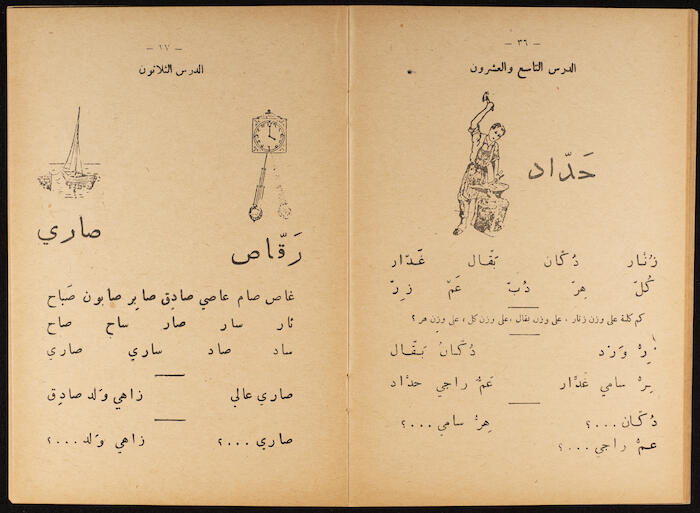 – ٣٦ –
الدرس التاسع والعشرون
حَدّاد
زُنّار دُكّان بَقّال غَدّار
كُلّ هِرّ دُبّ عَمّ زِرّ
كم كلمة على وزن زنار ، على وزن بقال ، على وزن كل ، على وزن هر ؟
زِرُّ وَرْد دُكّانُ بَقّال
هِرُّ سامي غَدّار عَمُّ راجي حدّاد
دُكّان ...؟ هِرُّ سامي ...؟
عَمُّ راجي ...؟
– ٣٧ –
الدرس الثلاثون
رَقّاص
صاري
غاص صام عاصي صادِق صابِر صابون صَباح
ثار سار صار ساح صاح
ساد صاد ساري صاري
صاري عالي زاهي وَلد صادِق
صاري ...؟ زاهي وَلد ...؟